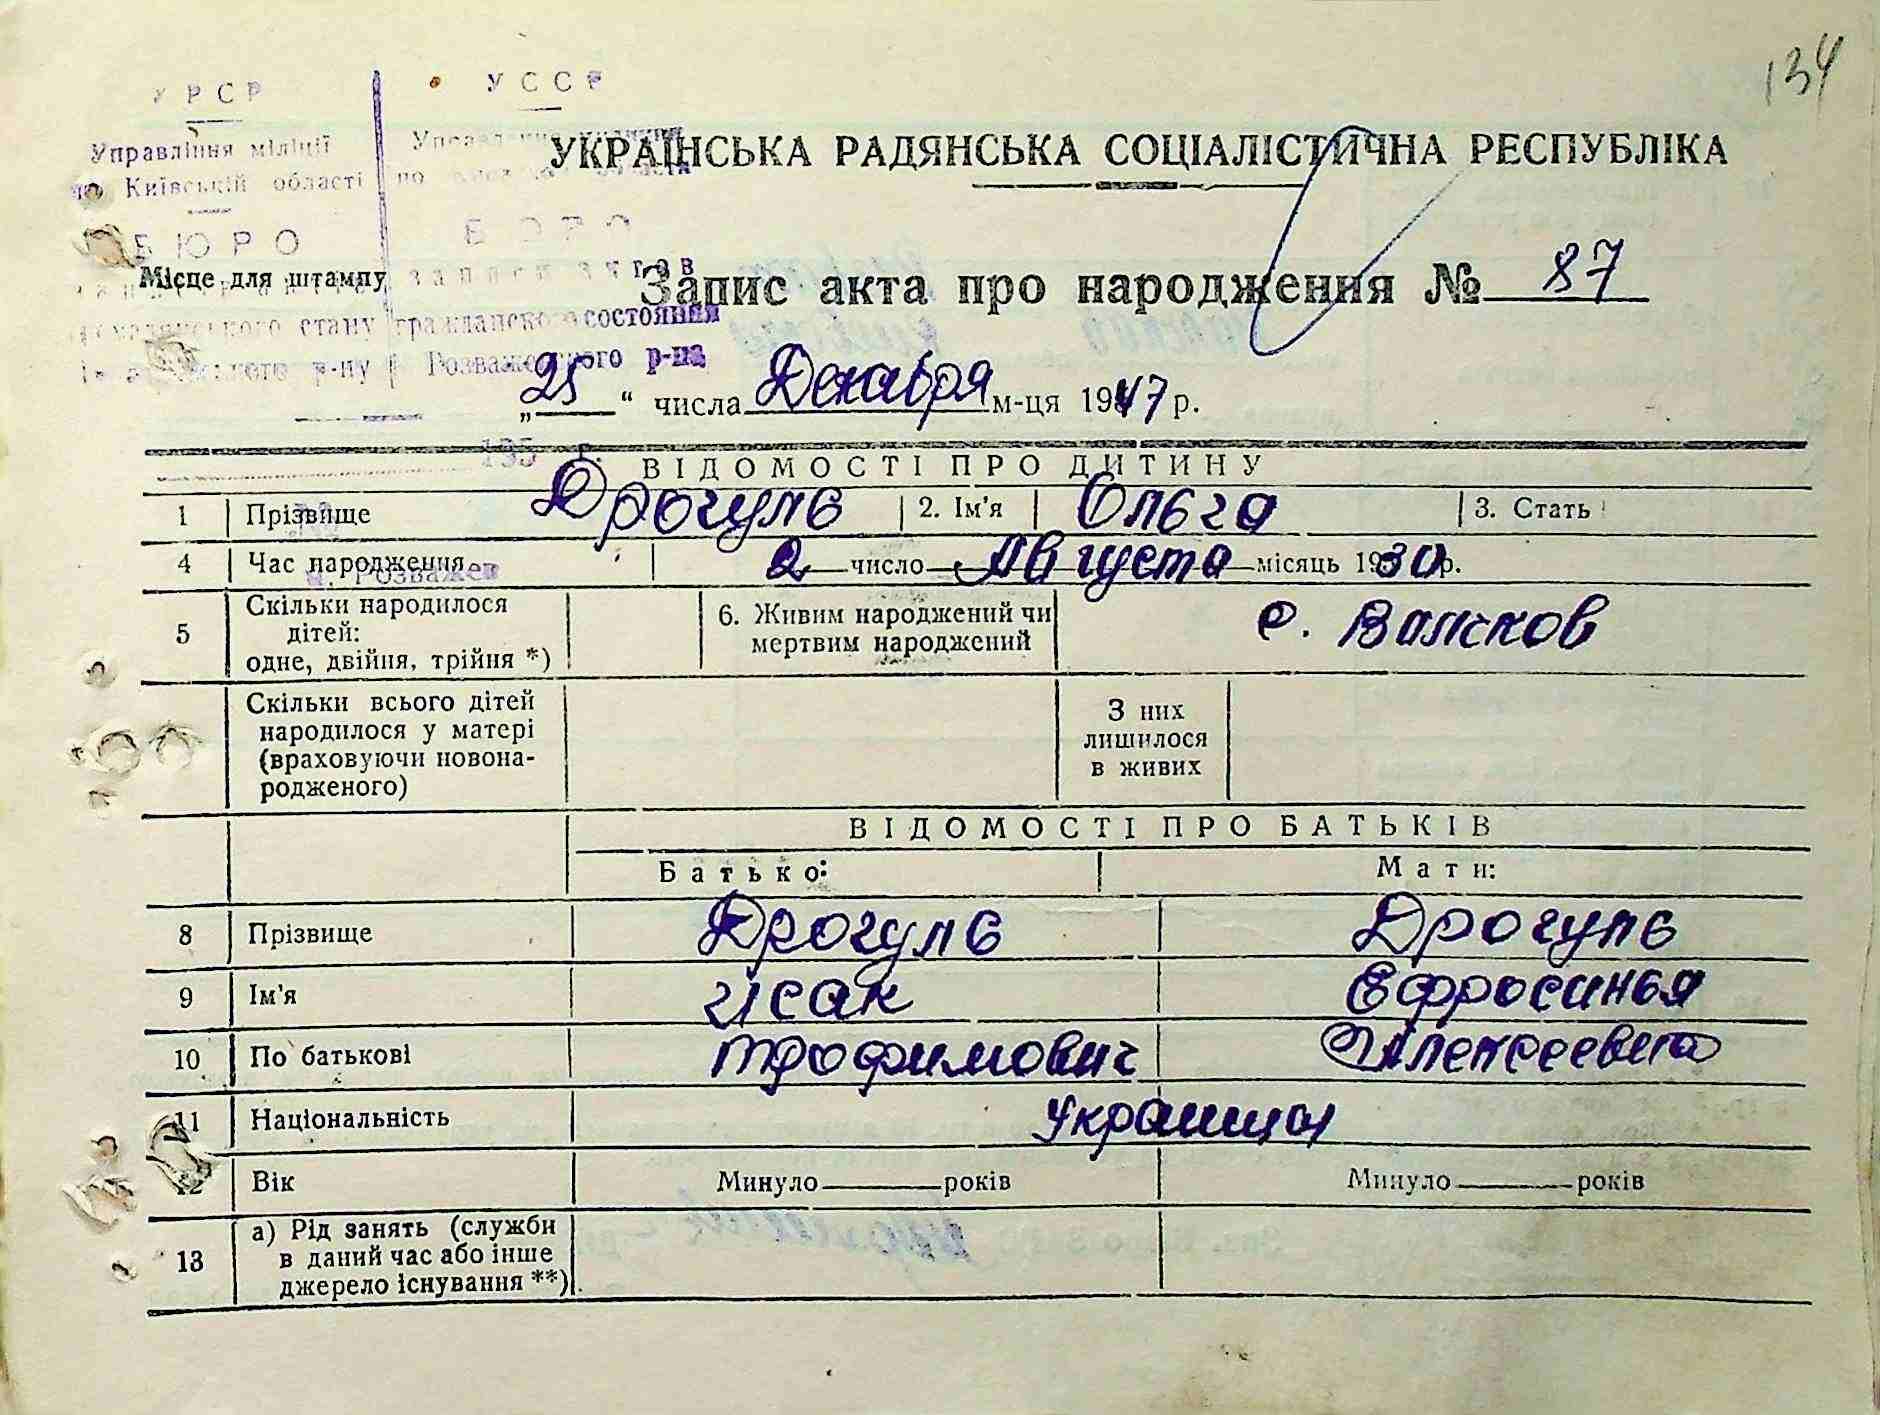 134
УРСР
УССР
Управління міліції
Київській області по
УКРАЇНСЬКА РАДЯНСЬКА СОЦІАЛІСТИЧНА РЕСПУБЛІКА
БЮРО
БЮРО
Місце для штампу
записи актов
Запис акта про народження № 87
стану гражданского состояния
р-ну Розважевского р-на
„25“ числа Декабря м-ця 1947 р.
195 г.
ВІДОМОСТІ ПРО ДИТИНУ
1 Прізвище Дрогуль 2. Ім'я Ольга 3. Стать
4 Час народження 2 число Августа місяць 1930 р.
с. Розважев
5 Скільки народилося дітей: одне, двійня, трійня *)
6. Живим народжений чи мертвим народжений
с. Вахков
Скільки всього дітей народилося у матері (враховуючи новонародженого)
З них лишилося в живих
ВІДОМОСТІ ПРО БАТЬКІВ
Батько: Мати:
8 Прізвище Дрогуль Дрогуль
9 Ім'я Исак Ефросинья
10 По батькові Трофимович Алексеевна
11 Національність украинцы
12 Вік Минуло років Минуло років
13 а) Рід занять (служби в даний час або інше джерело існування **)